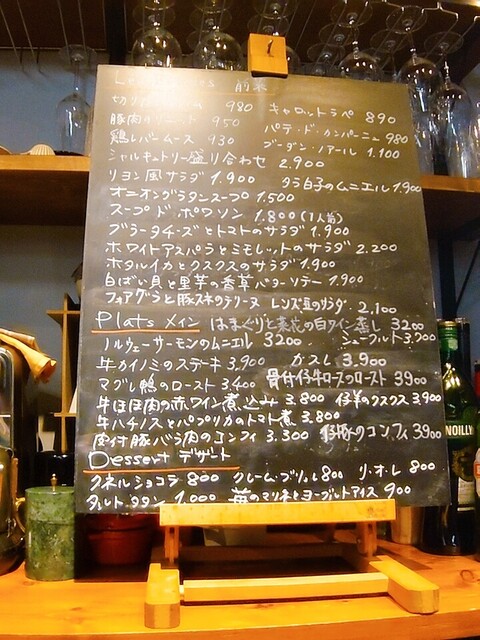 前菜
980 キャロットラペ 890
豚肉のリエット 950 パテ・ド・カンパーニュ 980
鶏レバームース 930 ブーダン・ノアール 1.100
シャルキュトリー盛り合わせ 2.900
リヨン風サラダ 1.900 タラ白子のムニエル 1.900
オニオングラタンスープ 1.500
スープ ド ポワソン 1.800 (1人前)
ブラータチーズとトマトのサラダ 1.900
ホワイトアスパラとミモレットのサラダ 2.200
ホタルイカとクスクスのサラダ 1.900
白ばい貝と里芋の香草バターソテー 1.900
フォアグラと豚スネのテリーヌ レンズ豆のサラダ 2,100
Plats メイン はまぐりと の白ワイン蒸し 3200
ノルウェーサーモンのムニエル 3200 シュークルート 3.700
牛カイノミのステーキ 3,900 カスレ 3,900
マグレ鴨のロースト 3,400 骨付仔牛ロースのロースト 3900
牛ほほ肉の赤ワイン煮込み 3.800 仔羊のクスクス 3,900
牛ハチノスとパプリカのトマト煮 3.800
肉付豚バラ肉のコンフィ 3.300 のコンフィ 3,900
Dessert デザート
クネルショコラ 800 クレーム・ブリュレ 800 リ・オ・レ 800
タルトタタン 1,000 苺のマリネとヨーグルトアイス 900
NOILLY